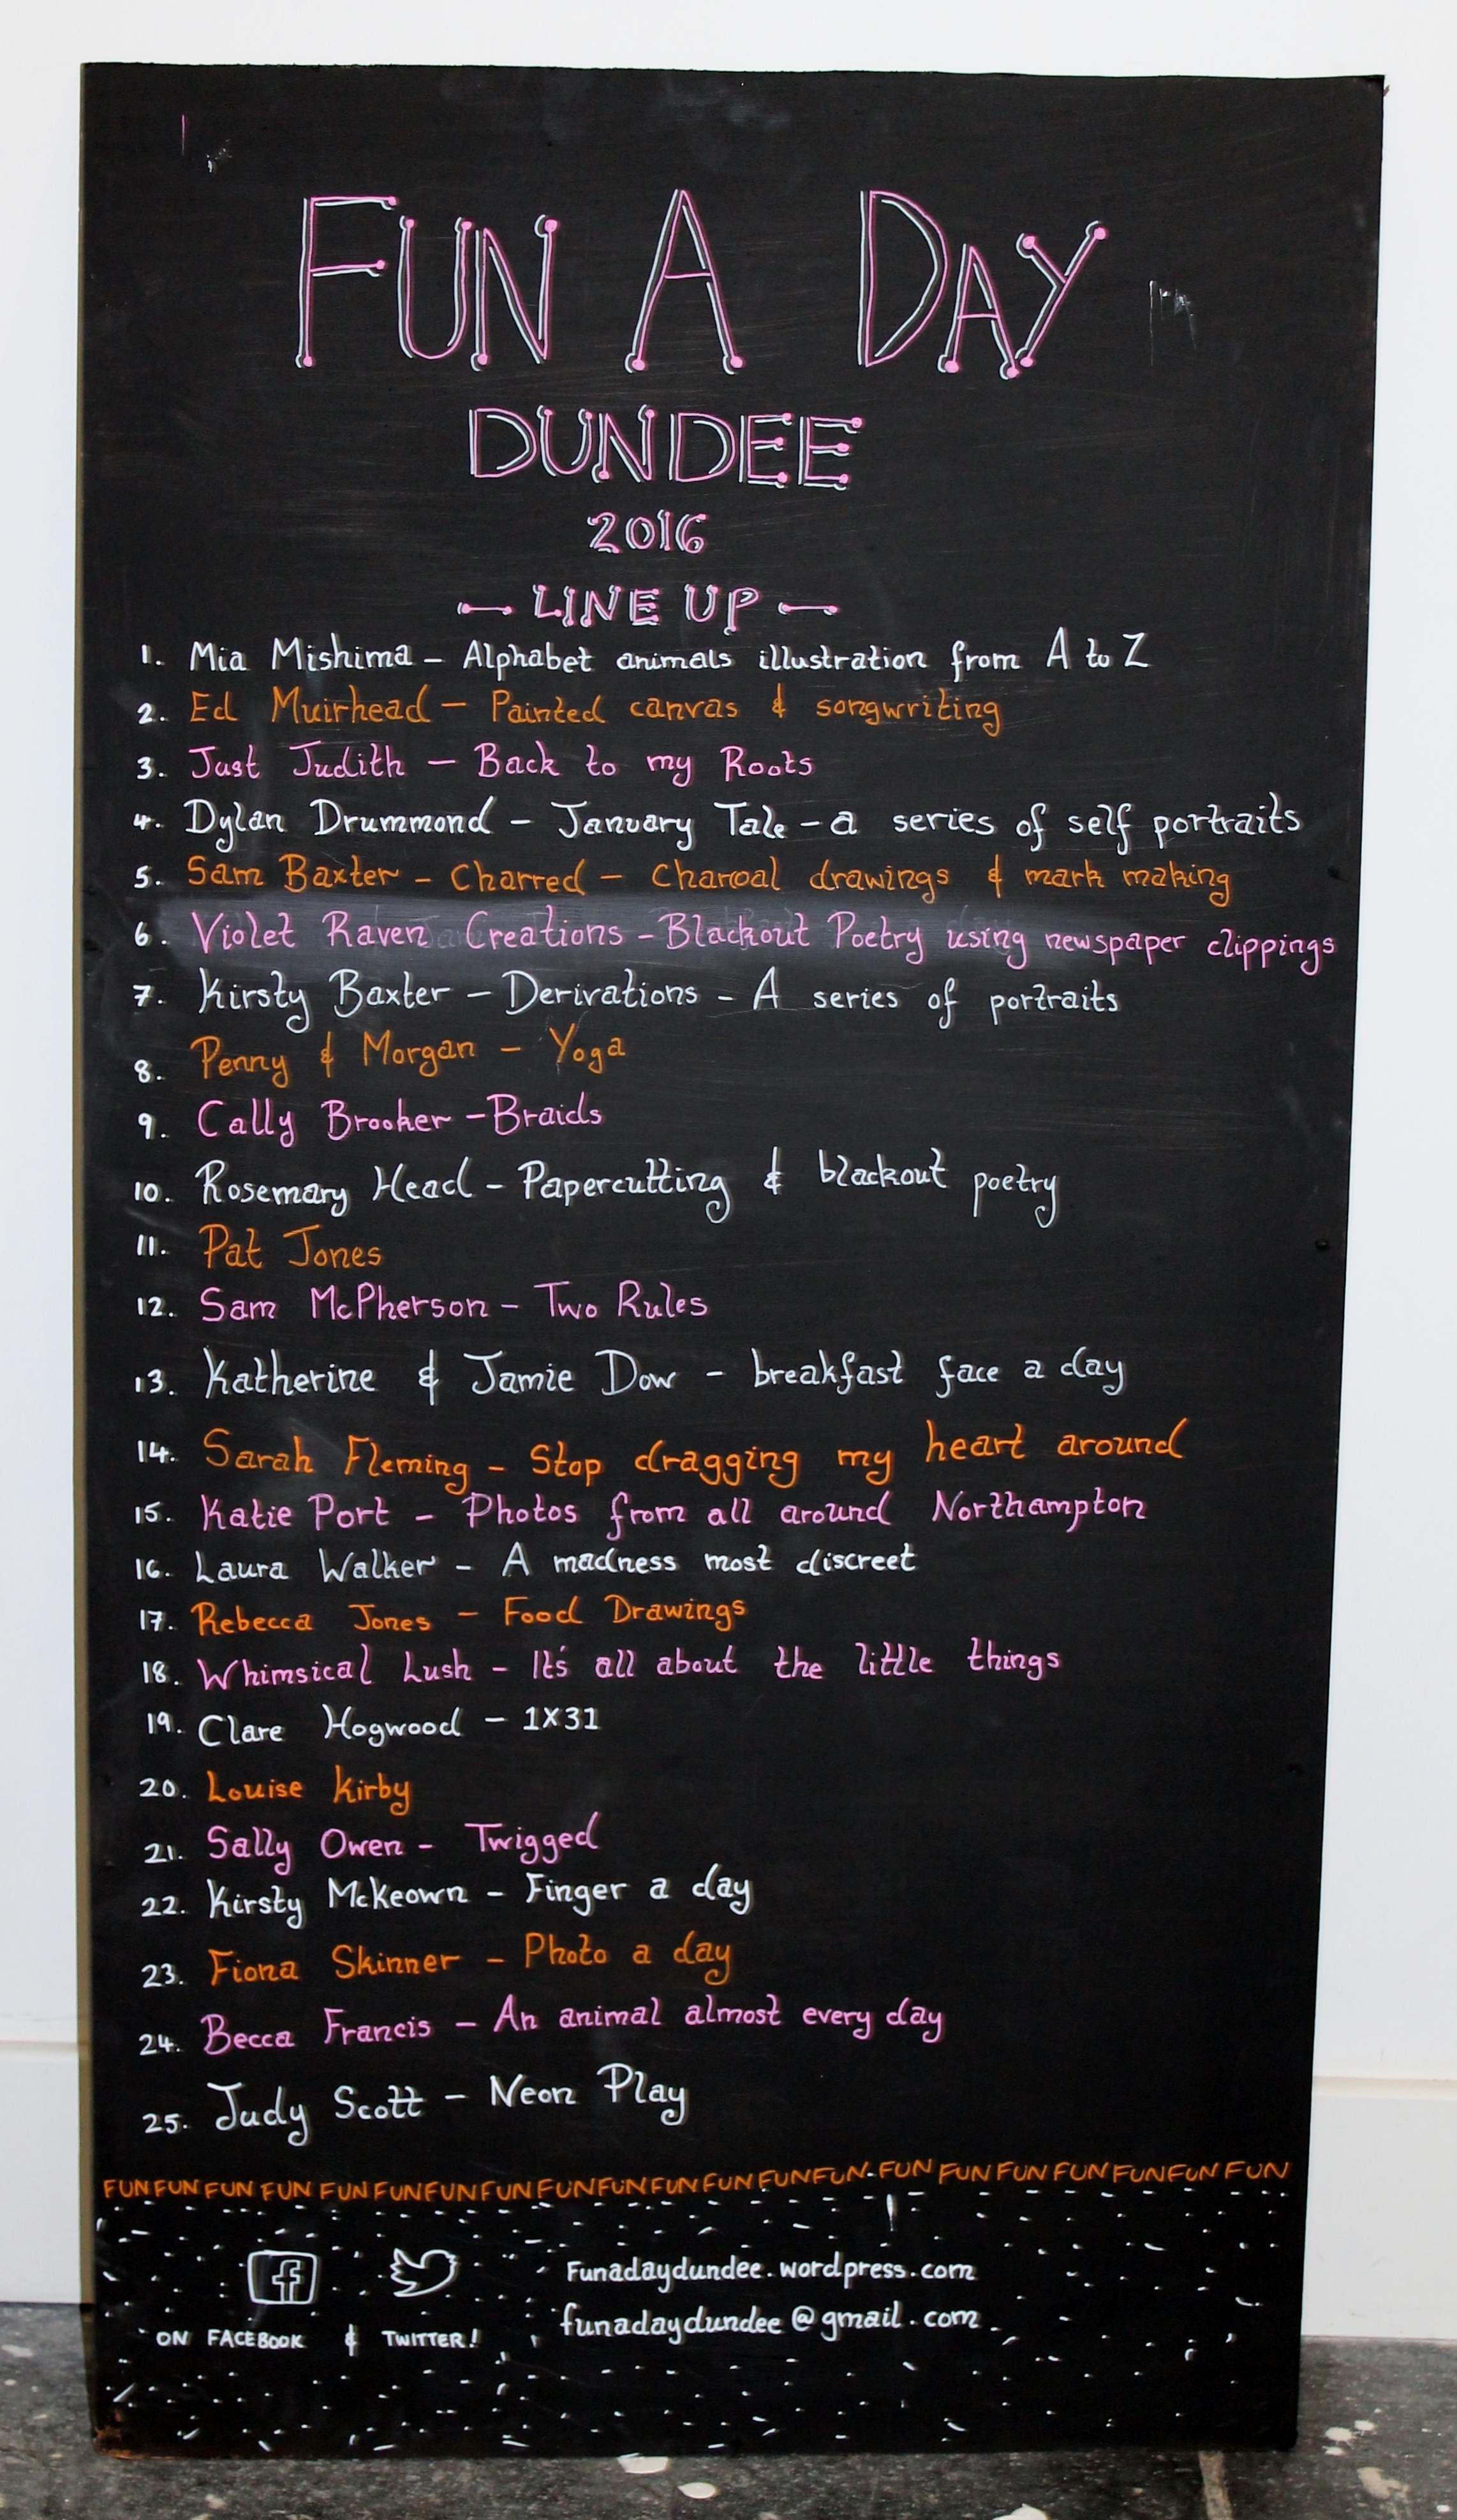 FUN A DAY
DUNDEE
2016
LINE UP
1. Mia Mishima - Alphabet animals illustration from A to Z
2. Ed Muirhead - Painted canvas & songwriting
3. Just Judith - Back to my Roots
4. Dylan Drummond - January Tale - a series of self portraits
5. Sam Baxter - Charred - Charcoal drawings & mark making
6. Violet Raven Creations - Blackout Poetry using newspaper clippings
7. Kirsty Baxter - Derivations - A series of portraits
8. Penny & Morgan - Yoga
9. Cally Brooker - Braids
10. Rosemary Head - Papercutting & blackout poetry
11. Pat Jones
12. Sam McPherson - Two Rules
13. Katherine & Jamie Dow - breakfast face a day
14. Sarah Fleming - Stop dragging my heart around
15. Katie Port - Photos from all around Northampton
16. Laura Walker - A madness most discreet
17. Rebecca Jones - Food Drawings
18. Whimsical Lush - It's all about the little things
19. Clare Hogwood - 1X31
20. Louise Kirby
21. Sally Owen - Twigged
22. Kirsty McKeown - Finger a day
23. Fiona Skinner - Photo a day
24. Becca Francis - An animal almost every day
25. Judy Scott - Neon Play
FUN FUN FUN FUN FUN FUN FUN FUN FUN FUN FUN FUN FUN FUN FUN FUN FUN FUN FUN FUN FUN
Funadaydundee.wordpress.com
funadaydundee@gmail.com
ON FACEBOOK & TWITTER!